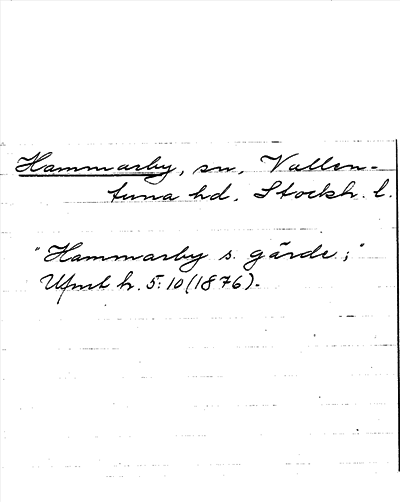 Hammarby, sn, Vallen-
tuna hd. Stockh. l.
"Hammarby s. gärde;"
Ufmt h. 5:10 (1876).